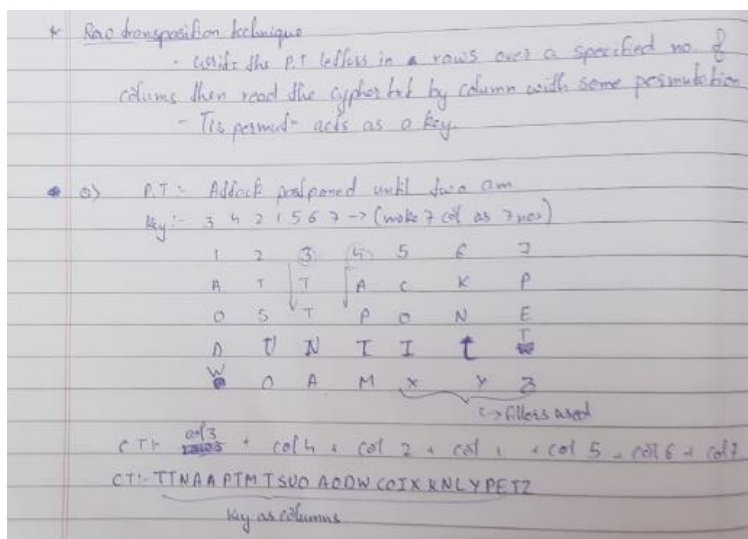 * Row transposition technique
- write the P.T letters in a rows over a specified no. of
colums then read the cypher txt by column with some permutation
- Tis permut- acts as a key.
Q) P.T :- Attack postponed until two am
Key :- 3 4 2 1 5 6 7 -> (make 7 col as 7 nos)
1 2 3 4 5 6 7
A T T A C K P
O S T P O N E
D U N T I L T
W O A M X Y Z
↳ fillers used
CT:- col 3 + col 4 + col 2 + col 1 + col 5 + col 6 + col 7
CT:- TTNAAPTMTSUOAODWCOIXKNLYPETZ
Key as columns